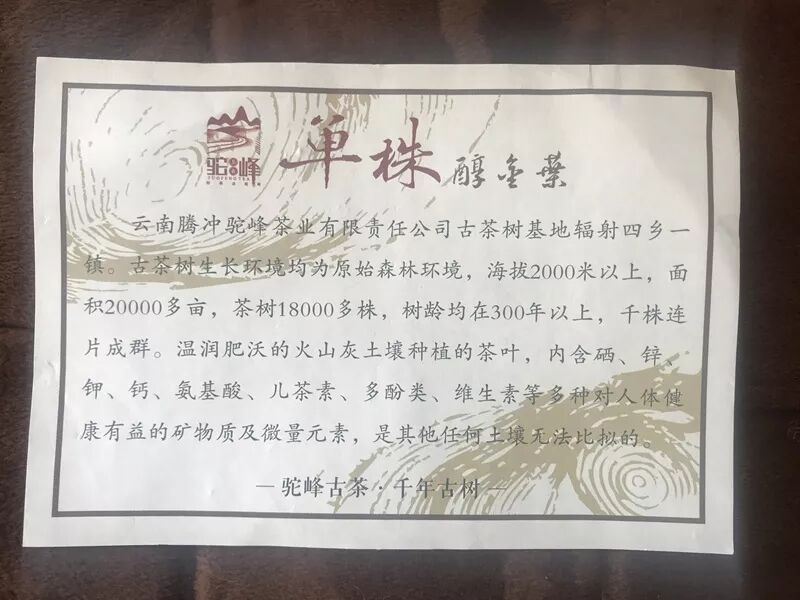 单株 醇金葉
驼峰
TUOFENGTEA
云南腾冲驼峰茶业有限责任公司古茶树基地辐射四乡一
镇。古茶树生长环境均为原始森林环境，海拔2000米以上，面
积20000多亩，茶树18000多株，树龄均在300年以上，千株连
片成群。温润肥沃的火山灰土壤种植的茶叶，内含硒、锌、
钾、钙、氨基酸、儿茶素、多酚类、维生素等多种对人体健
康有益的矿物质及微量元素，是其他任何土壤无法比拟的。
— 驼峰古茶·千年古树 —